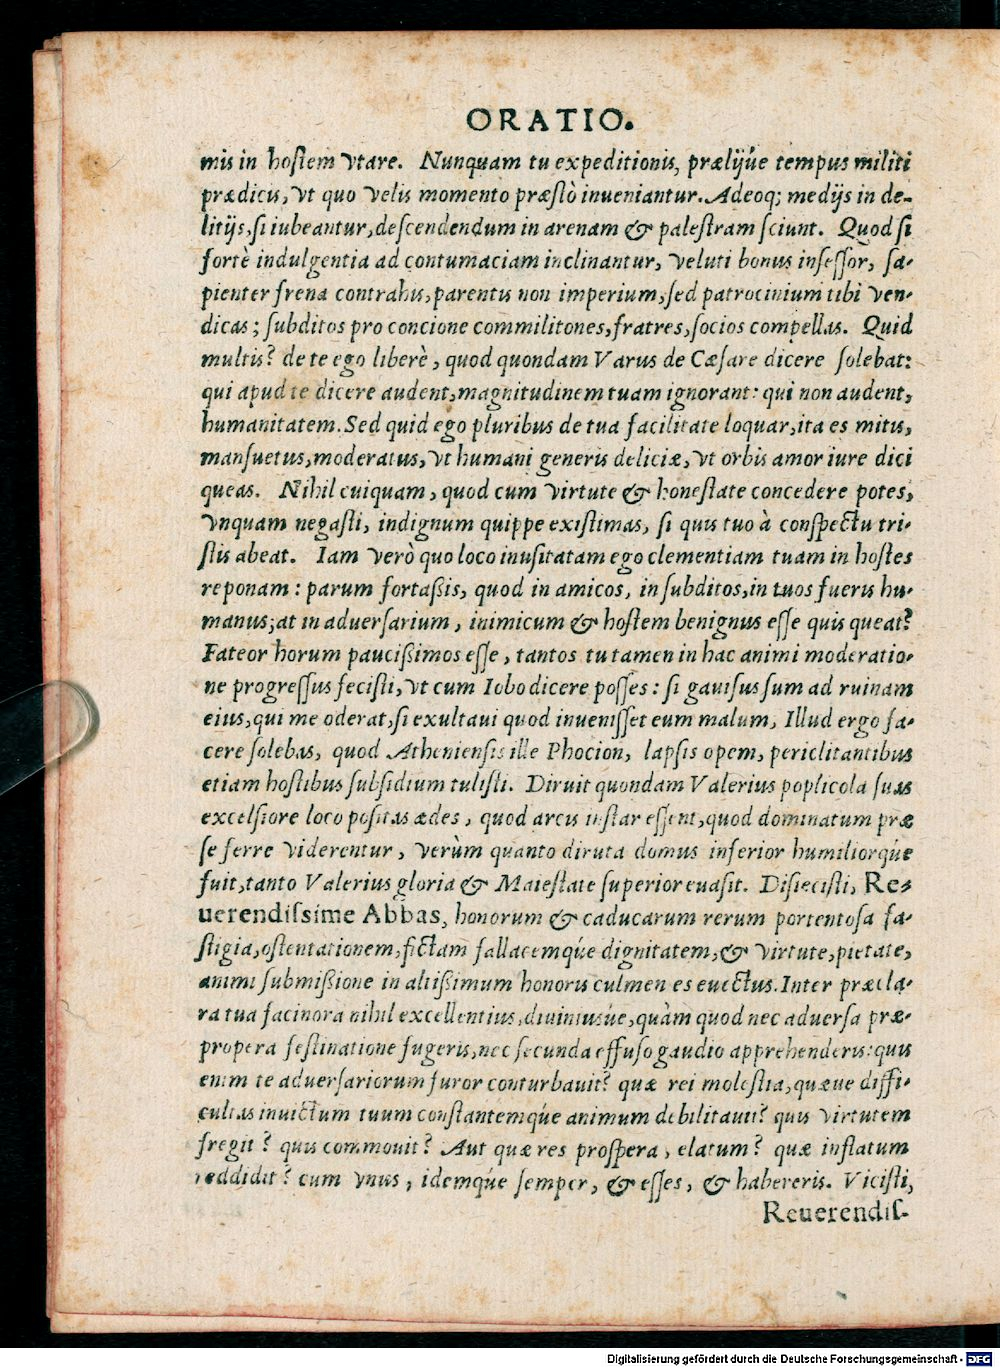 ORATIO.
mis in hostem vtare. Nunquam tu expeditionis, prælijúe tempus militi
prædicis, vt quo velis momento præstò inueniantur. Adeoq; medijs in de-
litijs, si iubeantur, descendendum in arenam & palestram sciunt. Quod si
fortè indulgentia ad contumaciam inclinantur, veluti bonus insessor, sa-
pienter frena contrahis, parentis non imperium, sed patrocinium tibi ven-
dicas; subditos pro concione commilitones, fratres, socios compellas. Quid
multis? de te ego liberè, quod quondam Varus de Cæsare dicere solebat:
qui apud te dicere audent, magnitudinem tuam ignorant: qui non audent,
humanitatem. Sed quid ego pluribus de tua facilitate loquar, ita es mitis,
mansuetus, moderatus, vt humani generis deliciæ, vt orbis amor iure dici
queas. Nihil cuiquam, quod cum virtute & honestate concedere potes,
vnquam negasti, indignum quippe existimas, si quis tuo à conspectu tri-
stis abeat. Iam verò quo loco inusitatam ego clementiam tuam in hostes
reponam: parum fortaßis, quod in amicos, in subditos, in tuos fueris hu-
manus; at in aduersarium, inimicum & hostem benignus esse quis queat?
Fateor horum paucißimos esse, tantos tu tamen in hac animi moderatio-
ne progressus fecisti, vt cum Iobo dicere posses: si gauisus sum ad ruinam
eius, qui me oderat, si exultaui quod inuenisset eum malum, Illud ergo fa-
cere solebas, quod Atheniensis ille Phocion, lapsis opem, periclitantibus
etiam hostibus subsidium tulisti. Diruit quondam Valerius poplicola suas
excelsiore loco positas ædes, quod arcis instar essent, quod dominatum præ
se ferre viderentur, verùm quanto diruta domus inferior humiliorqúe
fuit, tanto Valerius gloria & Maiestate superior euasit. Disiecisti, Re-
uerendissime Abbas, honorum & caducarum rerum portentosa fa-
stigia, ostentationem, fictam fallacemqúe dignitatem, & virtute, pietate,
animi submißione in altißimum honoris culmen es euectus. Inter præcla-
ra tua facinora nihil excellentius, diuiniusúe, quàm quod nec aduersa præ-
propera festinatione fugeris, nec secunda effuso gaudio apprehenderis: quis
enim te aduersariorum furor conturbauit? quæ rei molestia, quæue diffi-
cultas inuictum tuum constantemqúe animum debilitauit? quis virtutem
fregit? quis commouit? Aut quæ res prospera, elatum? quæ inflatum
reddidit? cum vnus, idemqúe semper, & esses, & habereris. Vicisti,
Reuerendis-
Digitalisierung gefördert durch die Deutsche Forschungsgemeinschaft - DFG